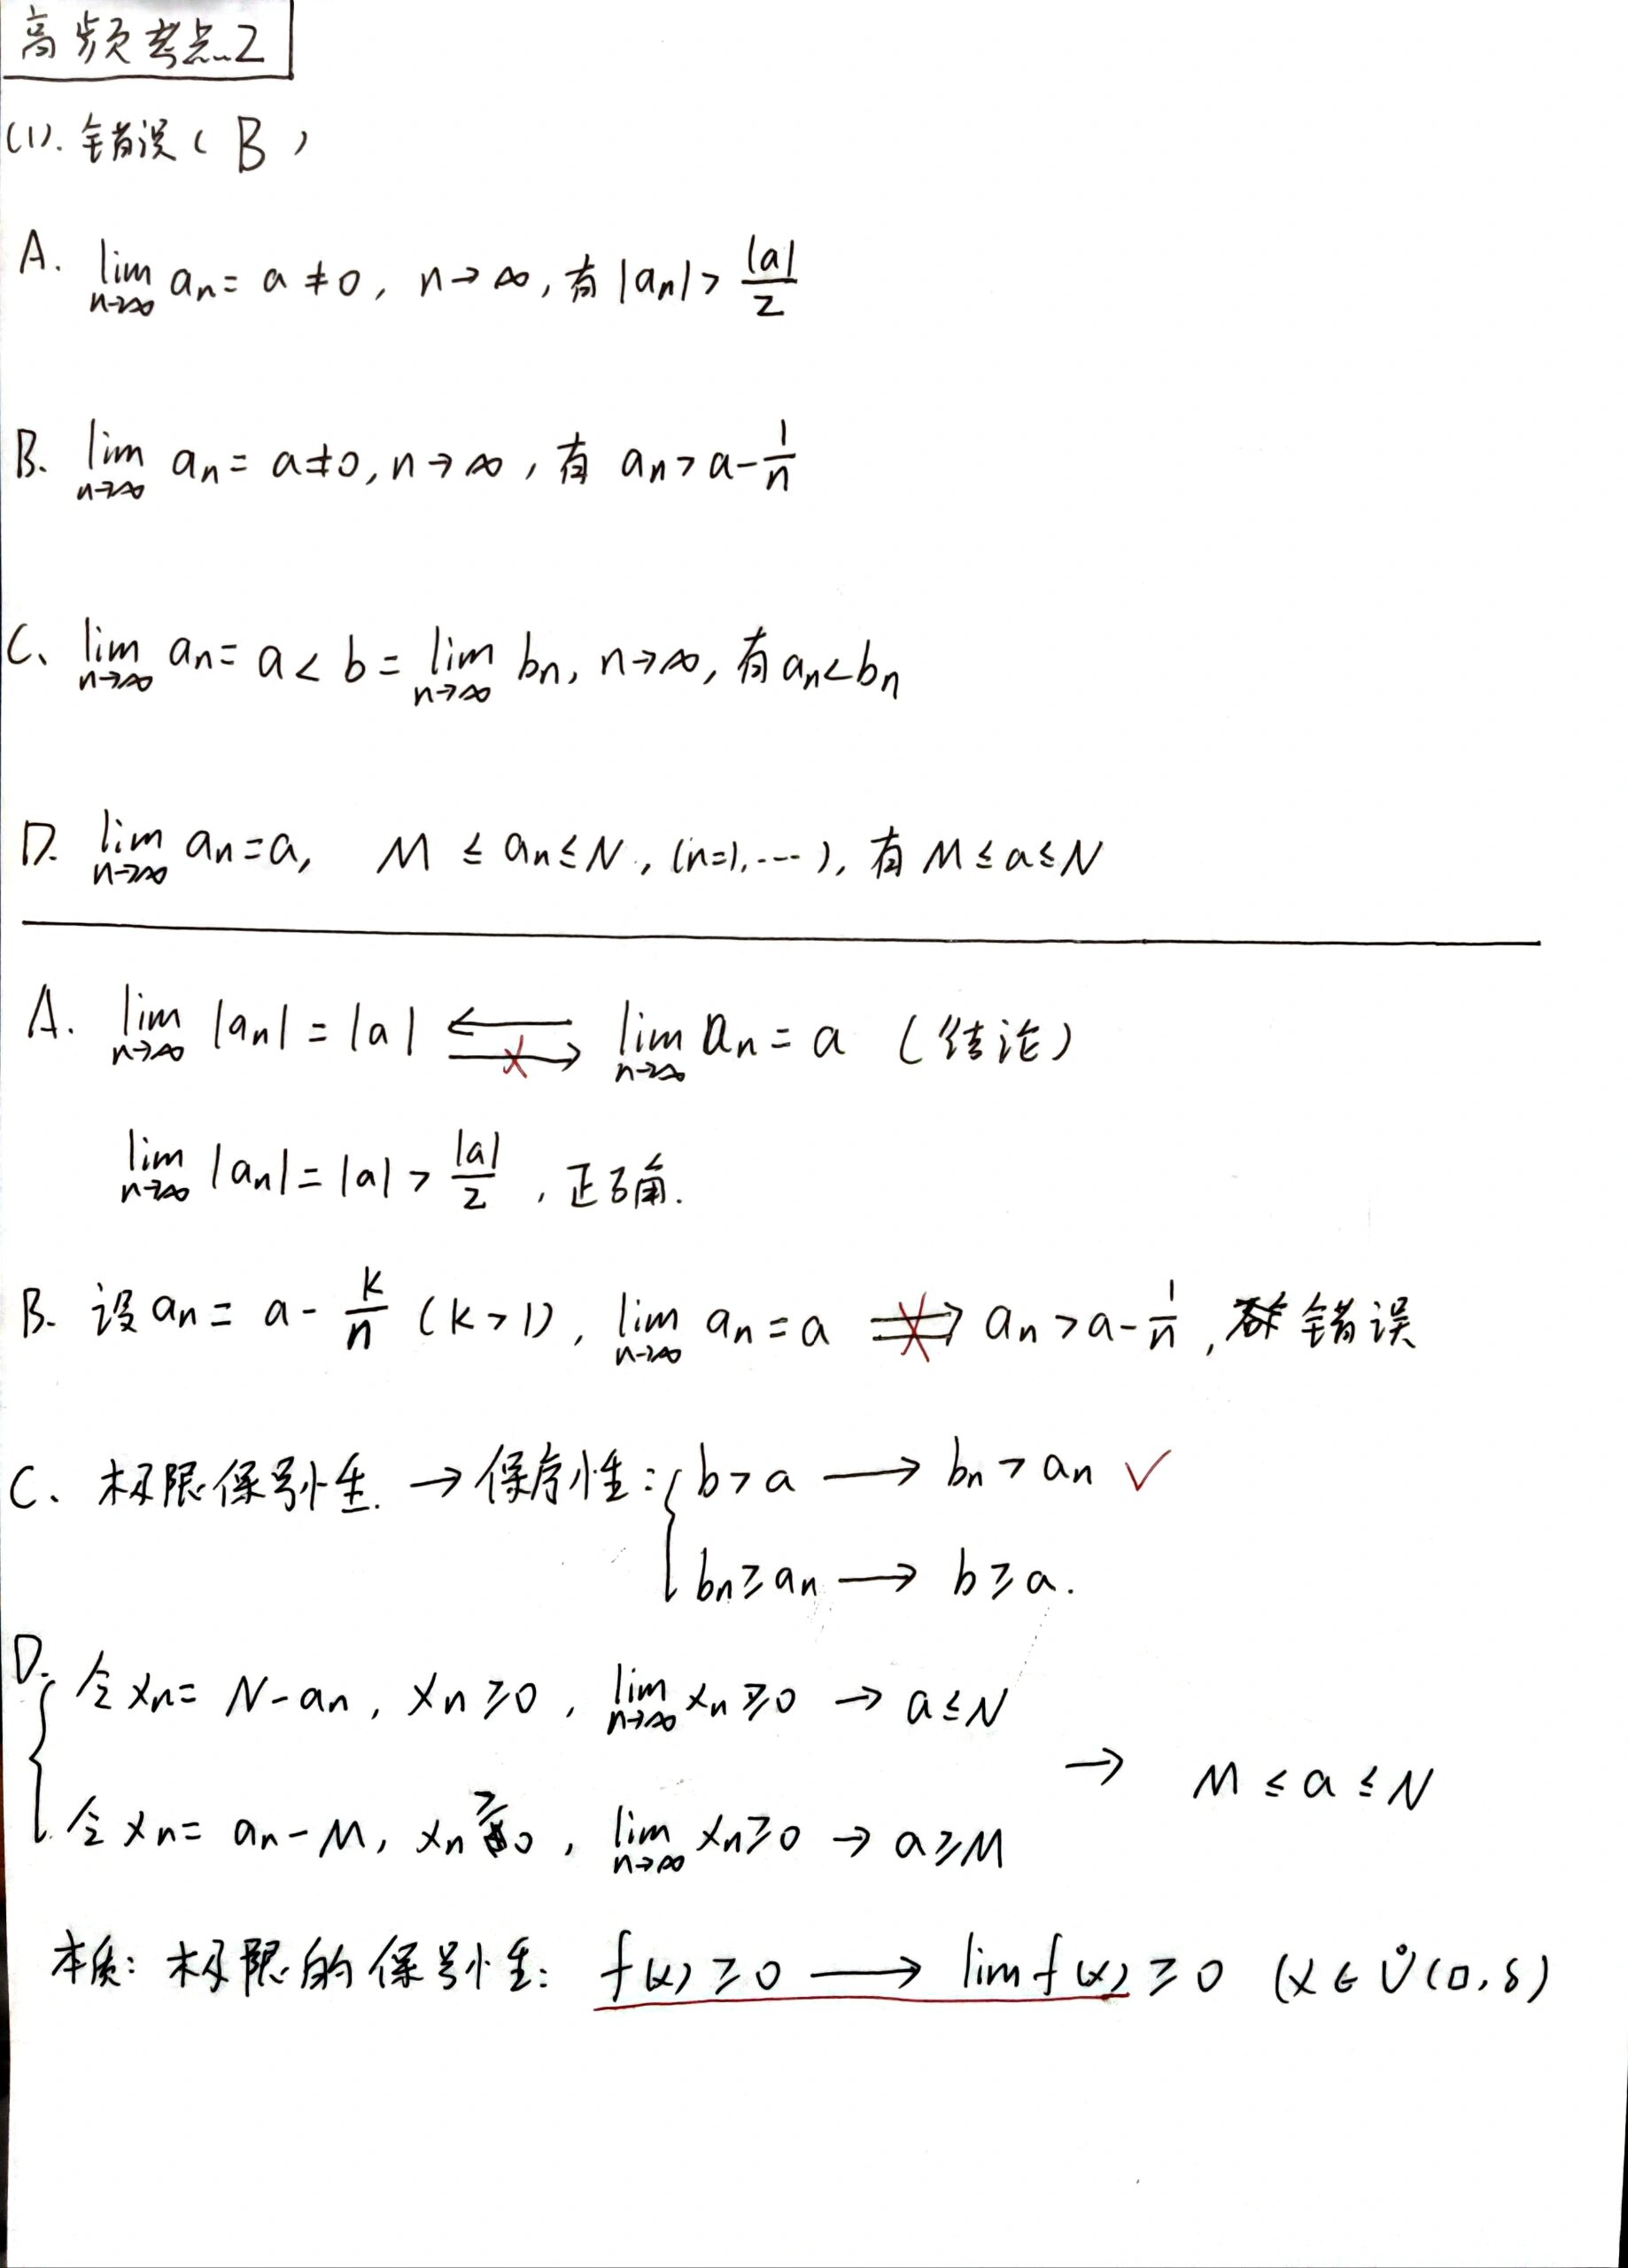 高频考点2
(1). 错误( B )
A. lim_{n→∞} aₙ = a ≠ 0, n→∞, 有 |aₙ| > |a|/2
B. lim_{n→∞} aₙ = a ≠ 0, n→∞, 有 aₙ > a - 1/n
C、 lim_{n→∞} aₙ = a < b = lim_{n→∞} bₙ, n→∞, 有 aₙ < bₙ
D. lim_{n→∞} aₙ = a, M ≤ aₙ ≤ N, (n=1,----), 有 M ≤ a ≤ N
A. lim_{n→∞} |aₙ| = |a| ⇐ ⇒(✗) lim_{n→∞} aₙ = a (结论)
lim_{n→∞} |aₙ| = |a| > |a|/2, 正确.
B. 设 aₙ = a - k/n (k>1), lim_{n→∞} aₙ = a ⇏ aₙ > a - 1/n, 错误
C、 极限保号性. → 保序性: { b > a ⟶ bₙ > aₙ ✓
bₙ ≥ aₙ ⟶ b ≥ a.
D. { 令 xₙ = N - aₙ, xₙ ≥ 0, lim_{n→∞} xₙ ≥ 0 → a ≤ N
→ M ≤ a ≤ N
令 xₙ = aₙ - M, xₙ ≥ 0, lim_{n→∞} xₙ ≥ 0 → a ≥ M
本质: 极限的保号性: f(x) ≥ 0 ⟶ lim f(x) ≥ 0 (x ∈ Ů(□, δ)